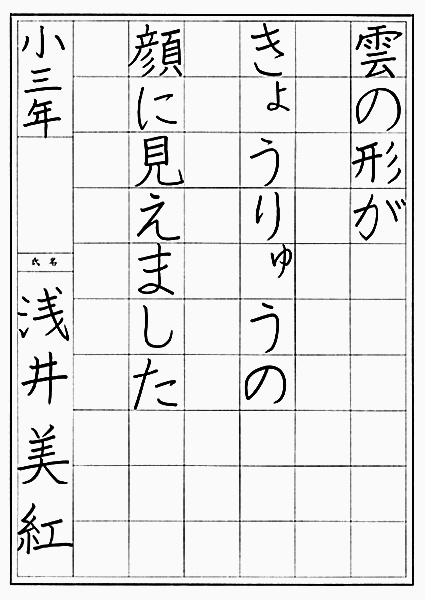 雲の形が
きょうりゅうの
顔に見えました
小三年
氏名
浅井美紅